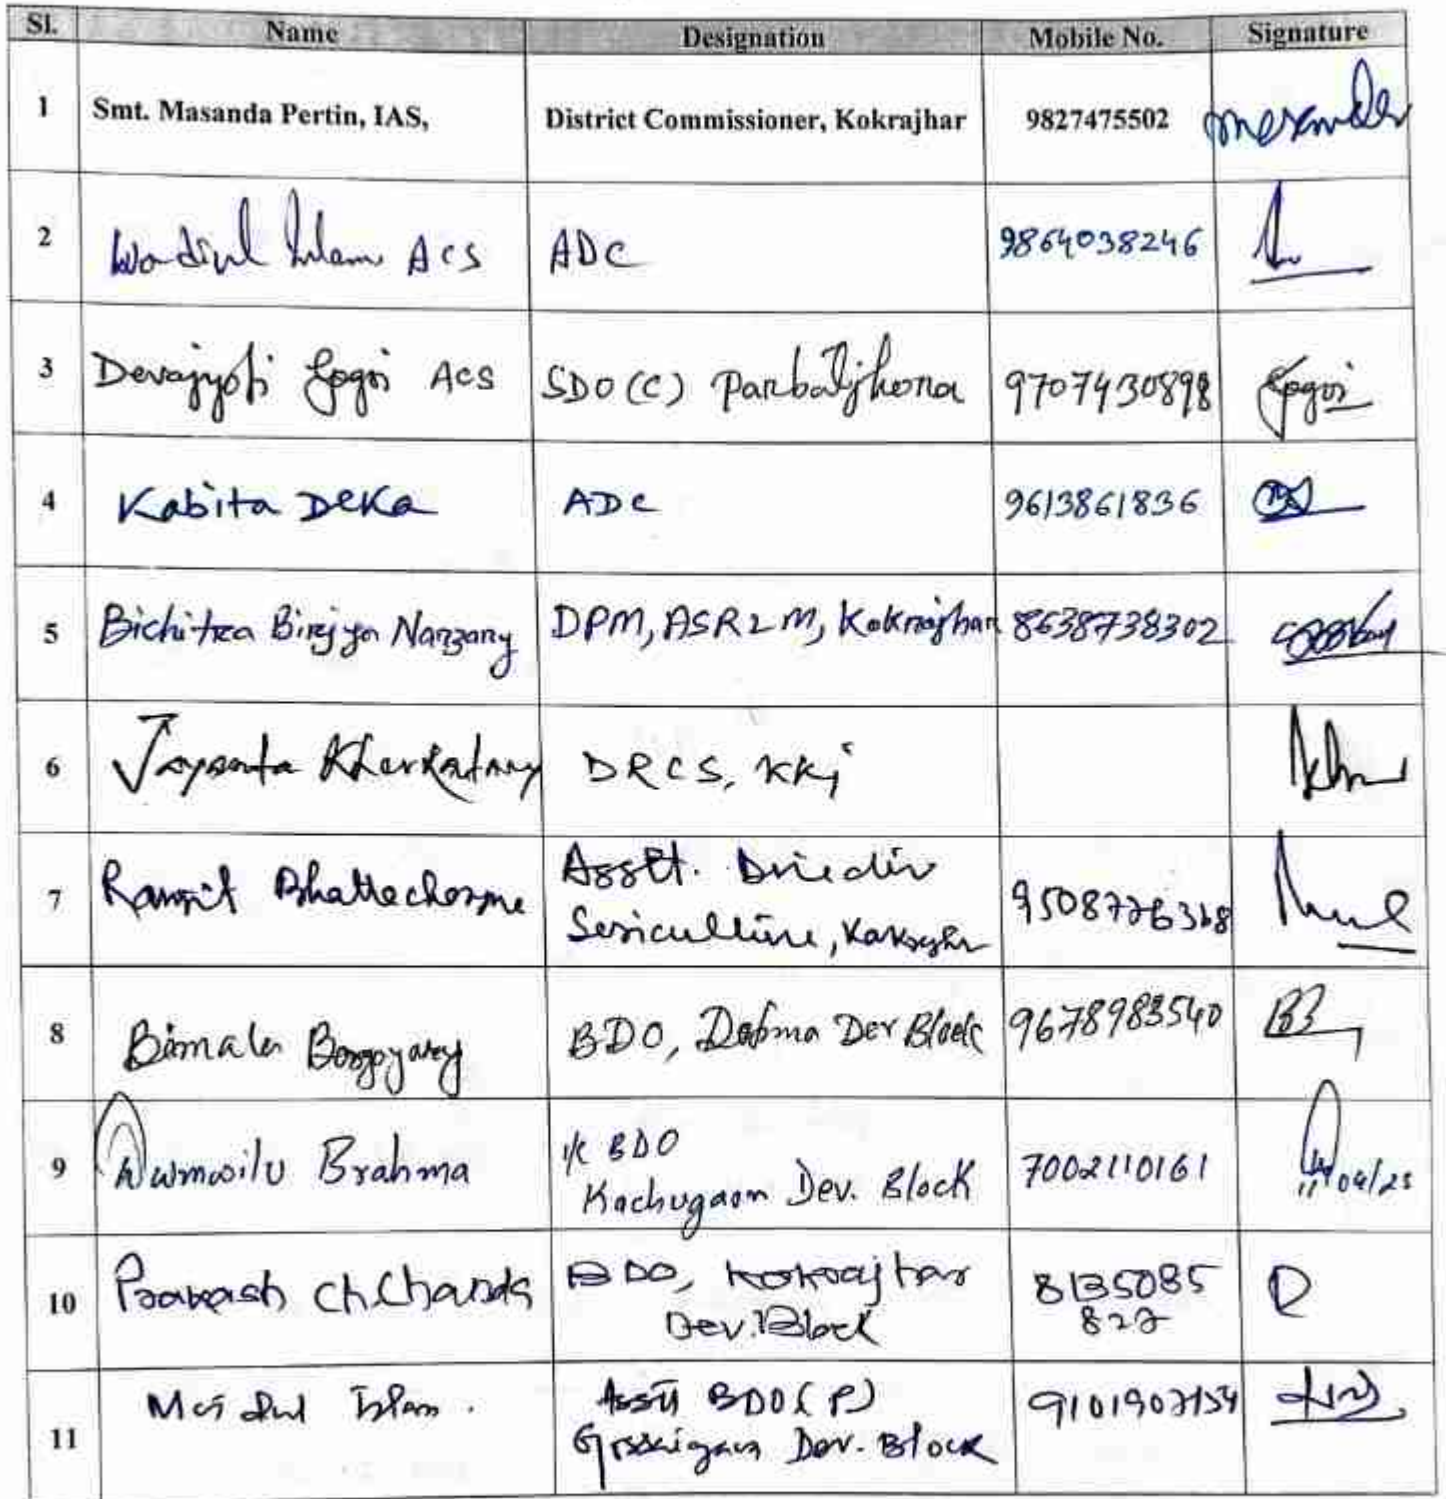 Sl. Name Designation Mobile No. Signature
1 Smt. Masanda Pertin, IAS, District Commissioner, Kokrajhar 9827475502
2 Islam ACS ADC 9864038246
3 Devajyoti Gogoi ACS SDO(C) Parbatjhora 9707430898 Gogoi
4 Kabita Deka ADC 9613861836
5 Bichitra Birjya Narzary DPM, ASRLM, Kokrajhar 8638738302
6 Jayanta Kherkatary DRCS, KKj
7 Ranjit Bhattacharjee Asstt. Director
Sericulture, Kokrajhar
8 Bimala Borgoyary BDO, Dotma Dev Block 9678983540 BB
9 Brahma i/c BDO
Kachugaon Dev. Block 7002110161
10 Prakash Ch.Chanda BDO, Kokrajhar
Dev.Block 8135085
827
11 Islam. Asstt BDO(P)
Gossaigaon Dev. Block